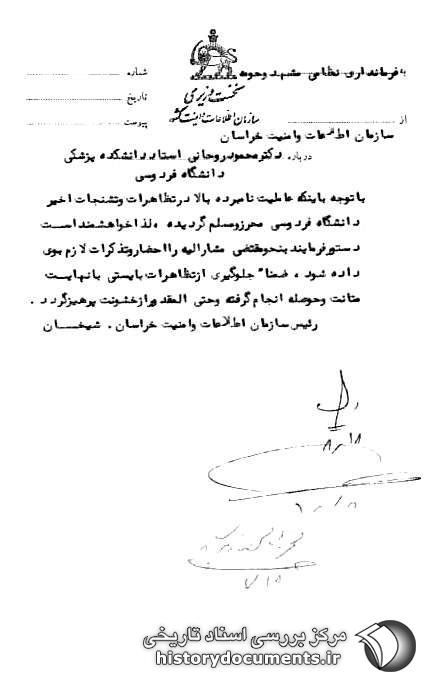 به فرمانداری نظامی مشهد وحومه
شماره
نخست وزیری
تاریخ
سازمان اطلاعات و امنیت کشور
پیوست
از
سازمان اطلاعات وامنیت خراسان
درباره دکترمحمود روحانی استاد دانشکده پزشکی
دانشگاه فردوسی
باتوجه باینکه عاملیت نامبرده بالا درتظاهرات وتشنجات اخیر
دانشگاه فردوسی محرزومسلم گردیده ، لذا خواهشمنداست
دستورفرمایند بنحومقتضی مشارالیه رااحضاروتذکرات لازم بوی
داده شود ، ضمنا" جلوگیری ازتظاهرات بایستی بانهایت
متانت وحوصله انجام گرفته وحتی المقدورازخشونت پرهیزگردد .
رئیس سازمان اطلاعات وامنیت خراسان . شیخان
۸/۱۸
مرکز بررسی اسناد تاریخی
historydocuments.ir